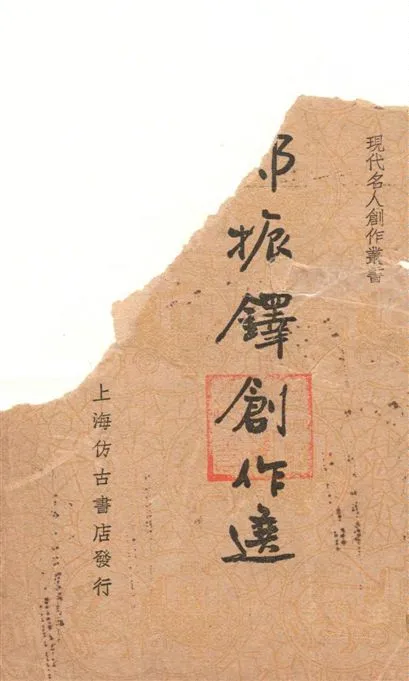 現代名人創作叢書
振鐸創作選
上海仿古書店發行